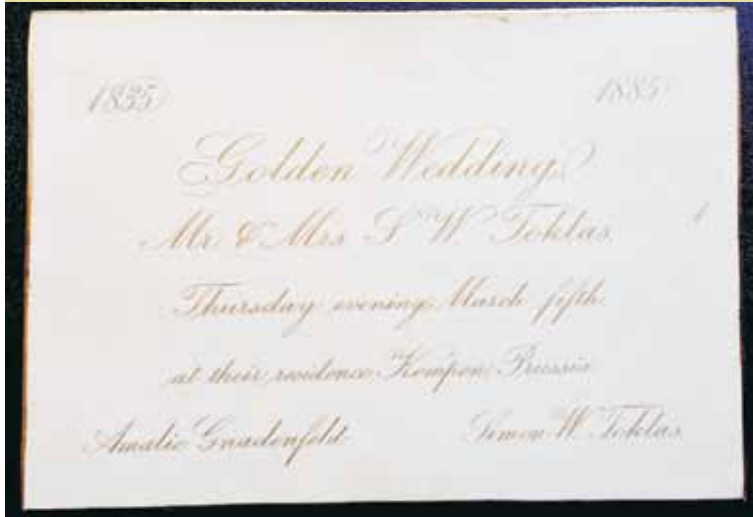 1835 1885
Golden Wedding
Mr. & Mrs. S. W. Toklas
Thursday evening March fifth
at their residence Kempen Prussia
Amalie Gnadenfeld Simon W. Toklas